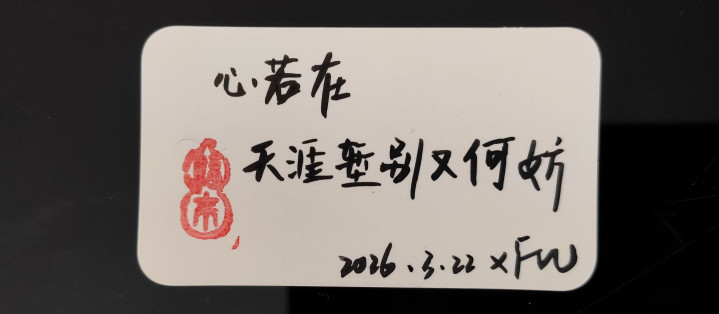 心若在
天涯堑别又何妨
2026.3.22 XFW